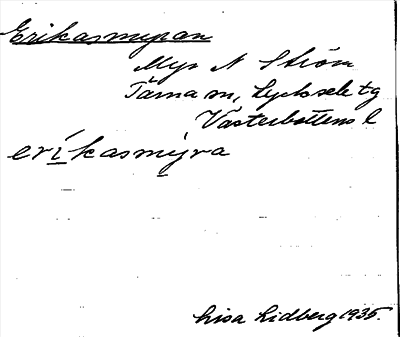 Erikasmyran
Myr N Ström
Tärna sn, Lycksele tg
Västerbottens l
erikasmyra
Lisa Lidberg 1935.